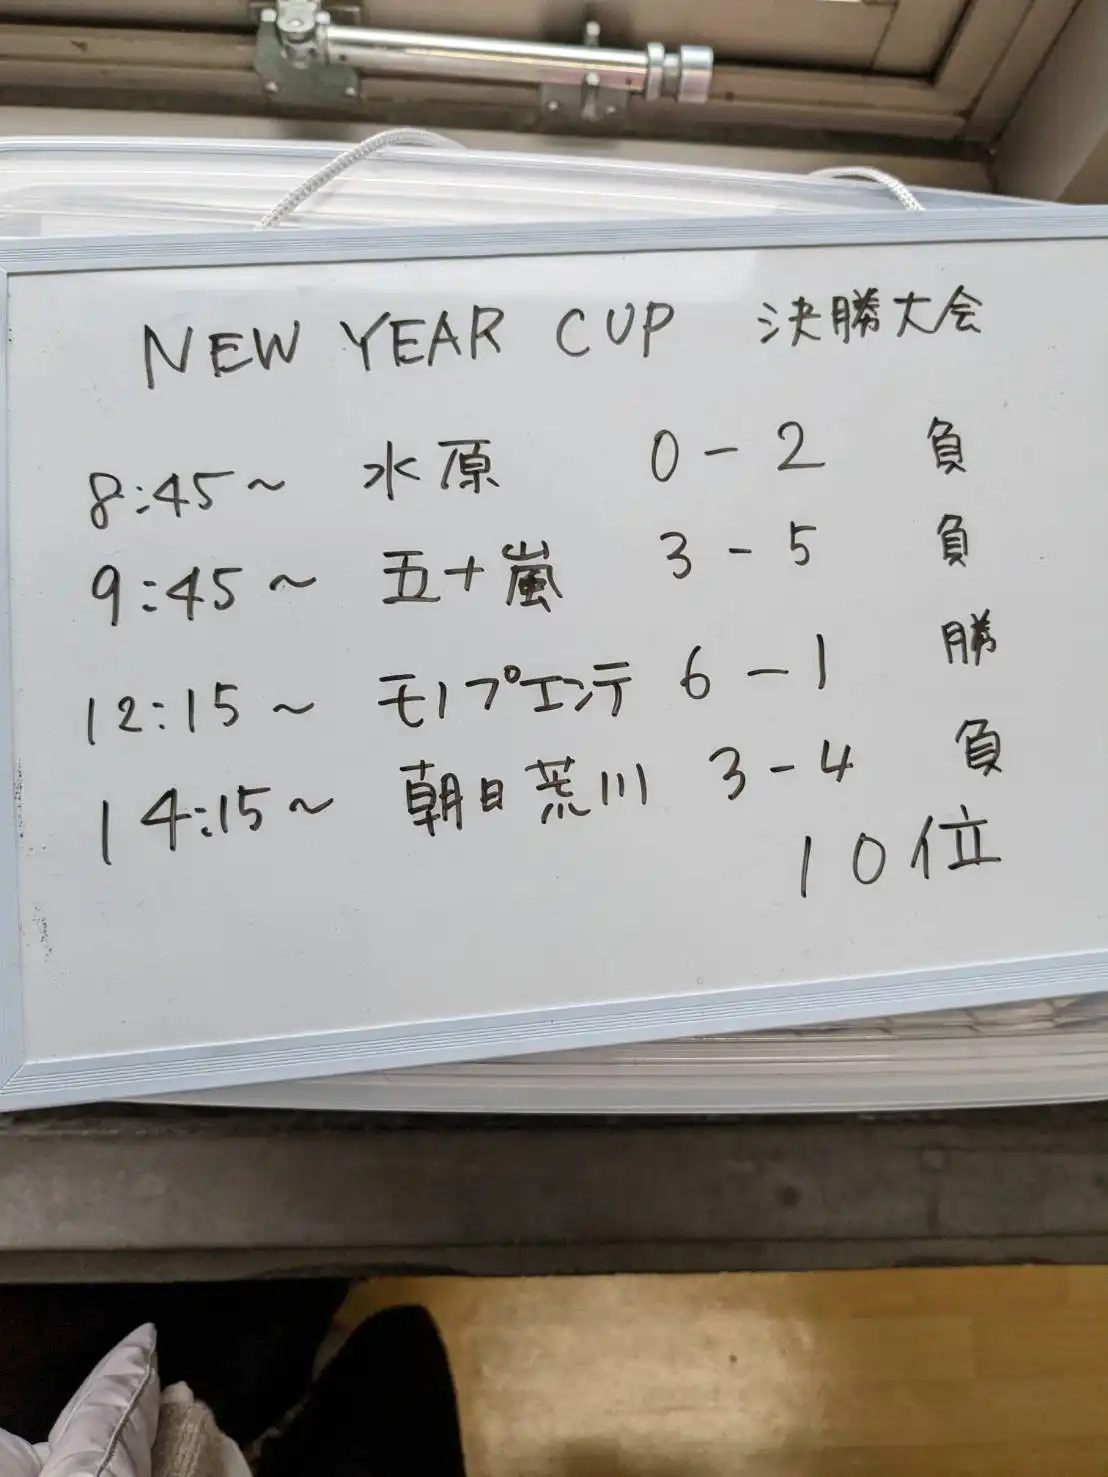 NEW YEAR CUP 決勝大会
8:45~ 水原 0-2 負
9:45~ 五十嵐 3-5 負
12:15~ モノプエンテ 6-1 勝
14:15~ 朝日荒川 3-4 負
10位